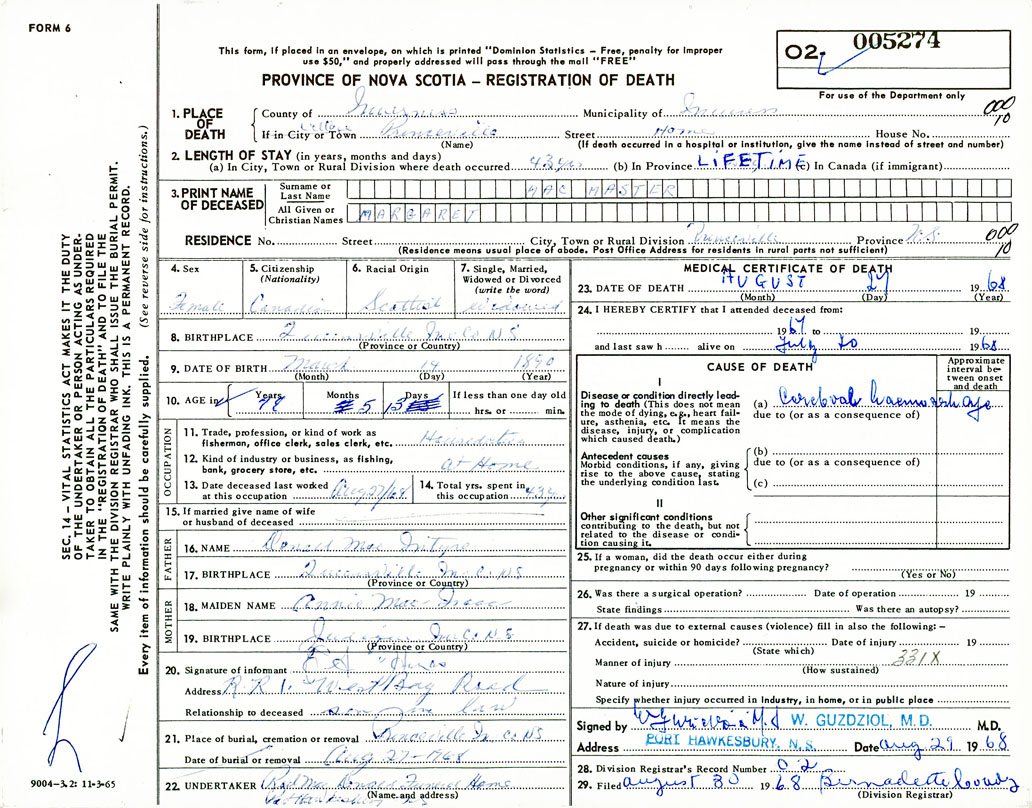 FORM 6
This form, if placed in an envelope, on which is printed "Dominion Statistics – Free, penalty for improper
use $50," and properly addressed will pass through the mail "FREE"
PROVINCE OF NOVA SCOTIA – REGISTRATION OF DEATH
O2- 005274
For use of the Department only
1. PLACE OF DEATH
County of Inverness Municipality of Inverness 000 10
If in City or Town Village Princeville Street Home House No.
(Name) (If death occurred in a hospital or institution, give the name instead of street and number)
2. LENGTH OF STAY (in years, months and days)
(a) In City, Town or Rural Division where death occurred 43 yrs (b) In Province LIFETIME (c) In Canada (if immigrant)
3. PRINT NAME OF DECEASED
Surname or Last Name MAC MASTER
All Given or Christian Names MARGARET
RESIDENCE No. Street City, Town or Rural Division Princeville Province N.S. 000 10
(Residence means usual place of abode. Post Office Address for residents in rural parts not sufficient)
4. Sex Female
5. Citizenship (Nationality) Canadian
6. Racial Origin Scottish
7. Single, Married, Widowed or Divorced (write the word) Widowed
8. BIRTHPLACE Queensville Inv. Co NS
(Province or Country)
9. DATE OF BIRTH March 14 1890
(Month) (Day) (Year)
10. AGE in Years 78 Months 5 Days 13 If less than one day old
hrs. or min.
OCCUPATION
11. Trade, profession, or kind of work as
fisherman, office clerk, sales clerk, etc. Housekeeping
12. Kind of industry or business, as fishing,
bank, grocery store, etc. at Home
13. Date deceased last worked
at this occupation Aug 27/68
14. Total yrs. spent in
this occupation 43 yrs
15. If married give name of wife
or husband of deceased
FATHER
16. NAME Donald Mac Intyre
17. BIRTHPLACE Queensville Inv. C. NS
(Province or Country)
MOTHER
18. MAIDEN NAME Annie Mac Isaac
19. BIRTHPLACE Inv. Co. N.S.
(Province or Country)
20. Signature of informant
Address R.R. 1. West Bay Road
Relationship to deceased son in law
21. Place of burial, cremation or removal Princeville In. C. NS
Date of burial or removal Aug 27-1968
22. UNDERTAKER Mac Donald Funeral Home
(Name and address)
MEDICAL CERTIFICATE OF DEATH
23. DATE OF DEATH AUGUST 27 1968
(Month) (Day) (Year)
24. I HEREBY CERTIFY that I attended deceased from:
1967 to 19
and last saw h alive on July 20 1968
CAUSE OF DEATH
Approximate interval between onset and death
I
Disease or condition directly leading to death (This does not mean
the mode of dying, e.g., heart failure, asthenia, etc. It means the
disease, injury, or complication
which caused death.)
(a) Cerebral haemorrhage
due to (or as a consequence of)
Antecedent causes
Morbid conditions, if any, giving
rise to the above cause, stating
the underlying condition last.
(b)
due to (or as a consequence of)
(c)
II
Other significant conditions
contributing to the death, but not
related to the disease or condition causing it.
25. If a woman, did the death occur either during
pregnancy or within 90 days following pregnancy?
(Yes or No)
26. Was there a surgical operation? Date of operation 19
State findings Was there an autopsy?
27. If death was due to external causes (violence) fill in also the following: –
Accident, suicide or homicide? Date of injury 19
(State which)
Manner of injury 331X
(How sustained)
Nature of injury
Specify whether injury occurred in industry, in home, or in public place
Signed by M.D W. GUZDZIOL, M.D. M.D.
Address PORT HAWKESBURY, N. S. Date Aug 29 1968
28. Division Registrar's Record Number 02
29. Filed August 30 1968 Bernadette
(Division Registrar)
SEC. 14 – VITAL STATISTICS ACT MAKES IT THE DUTY
OF THE UNDERTAKER OR PERSON ACTING AS UNDER-
TAKER TO OBTAIN ALL THE PARTICULARS REQUIRED
IN THE "REGISTRATION OF DEATH" AND TO FILE THE
SAME WITH THE DIVISION REGISTRAR WHO SHALL ISSUE THE BURIAL PERMIT.
WRITE PLAINLY WITH UNFADING INK. THIS IS A PERMANENT RECORD.
Every item of information should be carefully supplied. (See reverse side for instructions.)
9004–3.2: 11-3-65